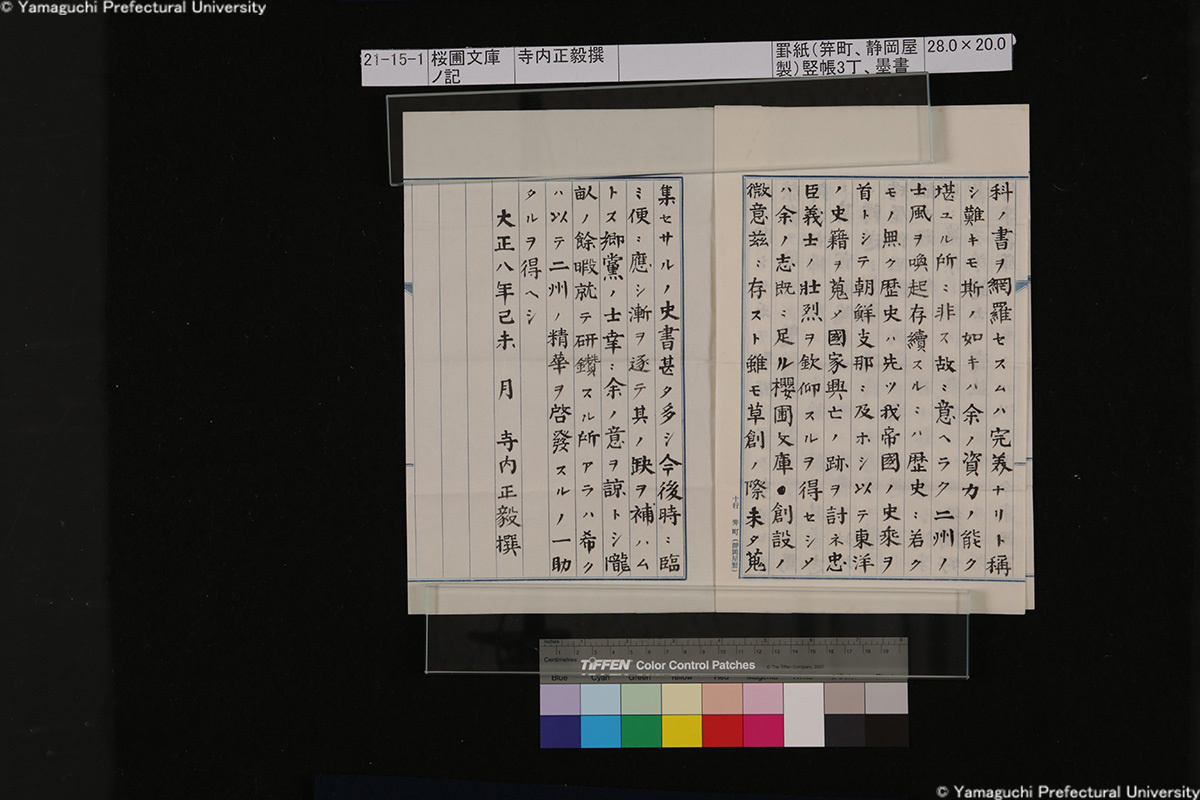 © Yamaguchi Prefectural University
21-15-1
桜圃文庫
ノ記
寺内正毅撰
罫紙(笄町、静岡屋
製)竪帳3丁、墨書
28.0×20.0
科ノ書ヲ網羅セスムハ完美ナリト稱
シ難キモ斯ノ如キハ余ノ資力ノ能ク
堪ユル所ニ非ス故ニ意ヘラク二州ノ
士風ヲ喚起存續スルニハ歴史ニ若ク
モノ無ク歴史ハ先ツ我帝國ノ史乘ヲ
首トシテ朝鮮支那ニ及ホシ以テ東洋
ノ史籍ヲ蒐メ國家興亡ノ跡ヲ討ネ忠
臣義士ノ壯烈ヲ欽仰スルヲ得セシメ
ハ余ノ志既ニ足ル櫻圃文庫創設ノ
微意茲ニ存スト雖モ草創ノ際未タ蒐
十行 笄町(静岡屋製)
集セサルノ史書甚タ多シ今後時ニ臨
ミ便ニ應シ漸ヲ逐テ其ノ缺ヲ補ハム
トス鄉黨ノ士幸ニ余ノ意ヲ諒トシ隴
畝ノ餘暇就テ研鑽スル所アラハ希ク
ハ以テ二州ノ精華ヲ啓發スルノ一助
タルヲ得ヘシ
大正八年己未 月 寺内正毅撰
inches
Centimetres
TIFFEN Color Control Patches
© The Tiffen Company, 2007
Blue Cyan Green Yellow Red Magenta
© Yamaguchi Prefectural University